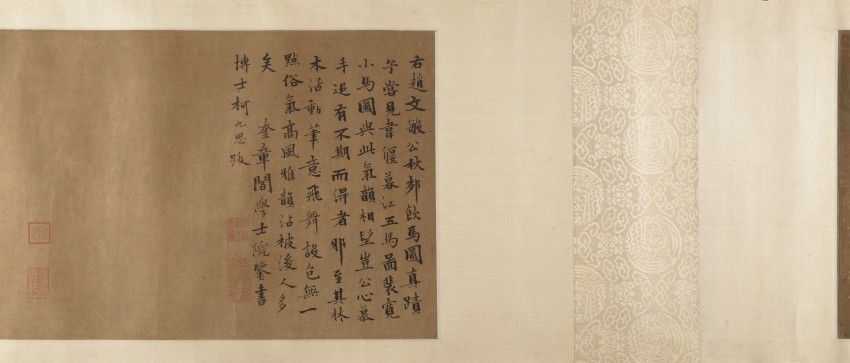 右趙文敏公秋郊飲馬圖真蹟
予嘗見韋偃暮江五馬圖裴寬
小馬圖與此氣韻相望豈公心慕
手追有不期而得者邪至其林
木活動筆意飛舞設色無一
點俗氣高風雅韻沾被後人多
矣 奎章閣學士院鑒書
博士柯九思跋